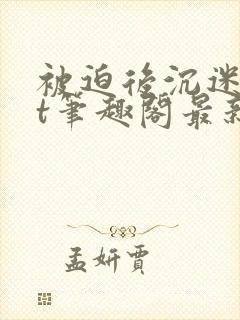 被迫后沉迷
t笔趣阁最新
孟妍贾